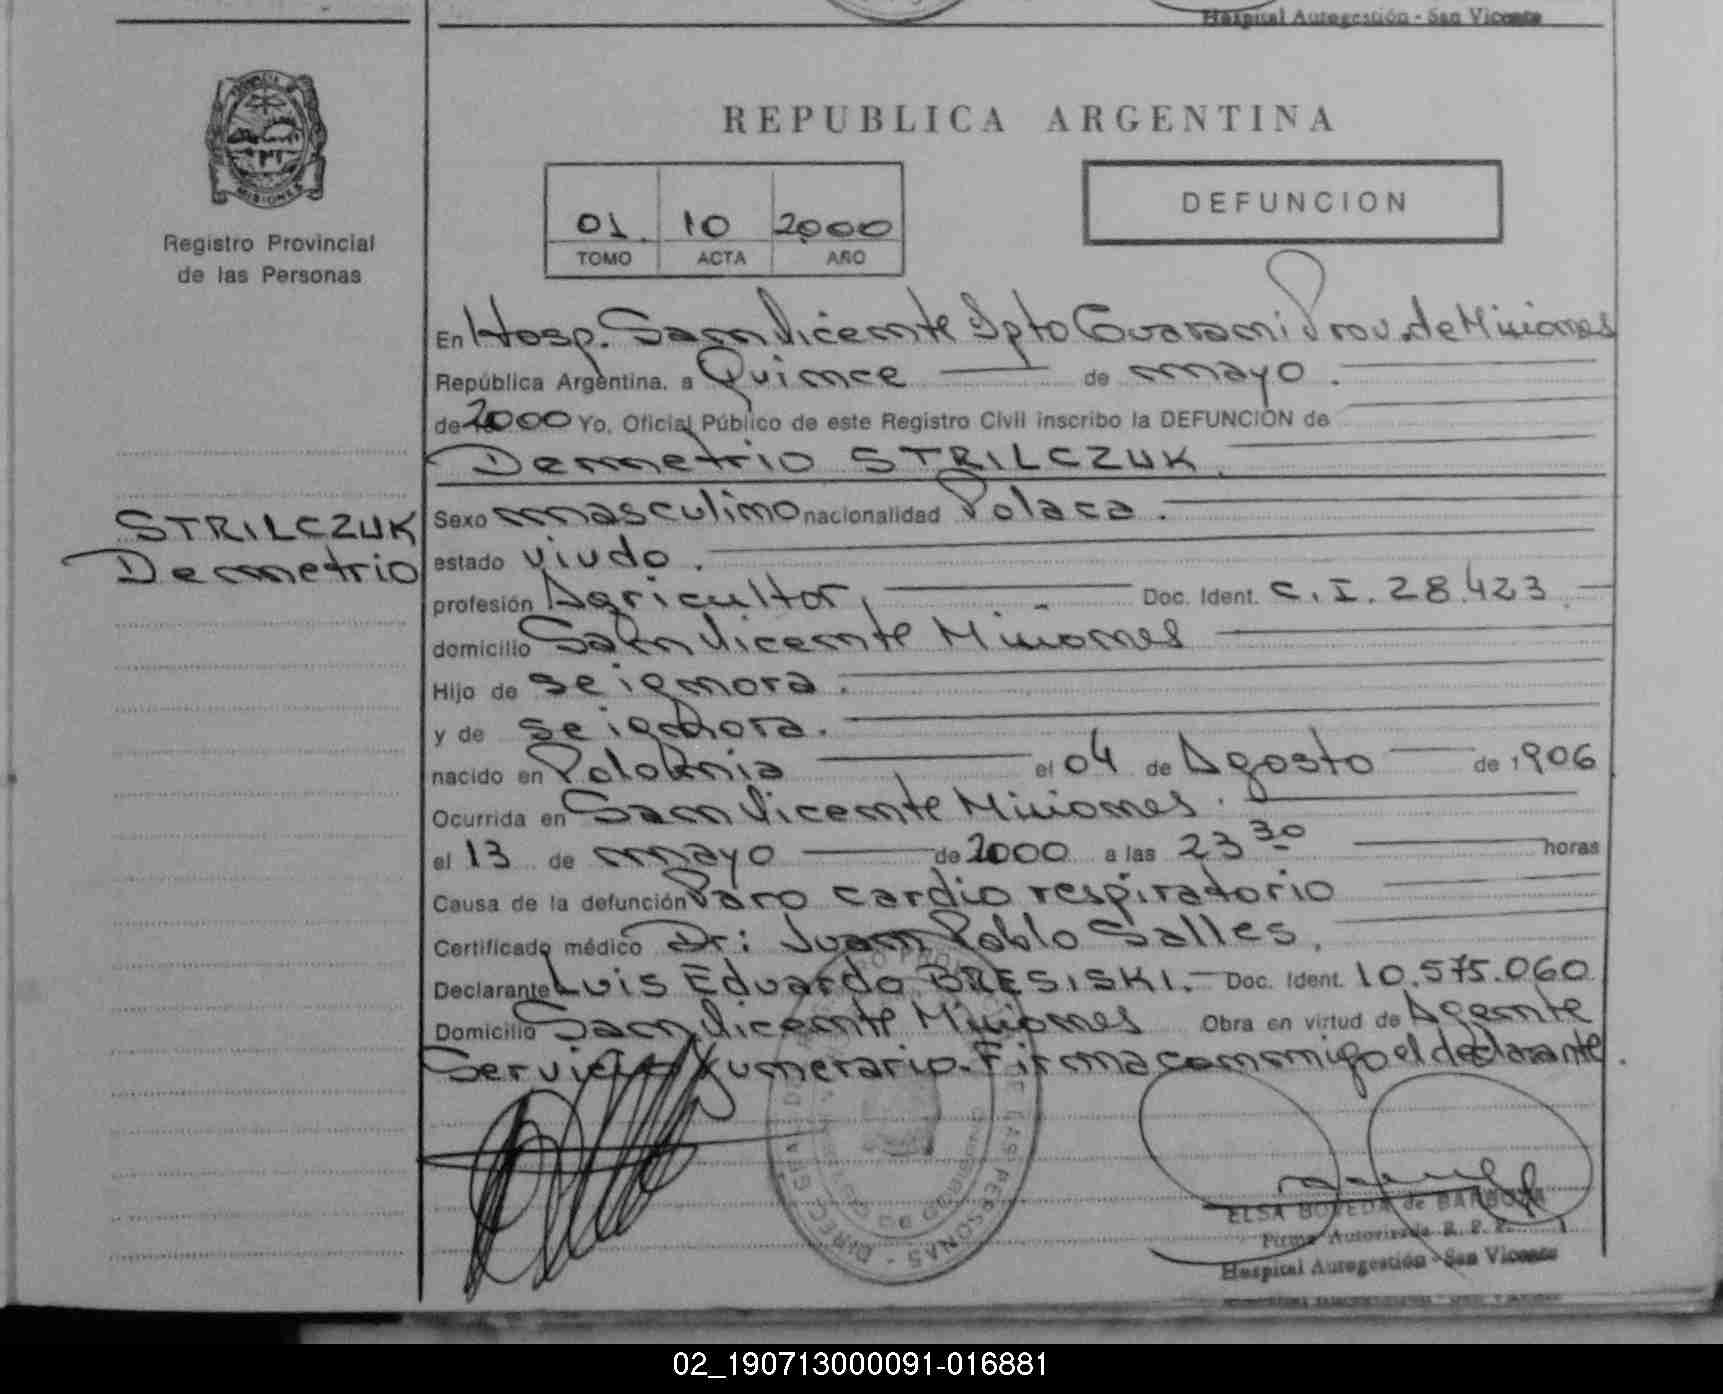 Hospital Autogestión - San Vicente
MISIONES
Registro Provincial
de las Personas
REPUBLICA ARGENTINA
01. 10 2000
TOMO ACTA AÑO
DEFUNCION
En Hosp. San Vicente Dpto Guarani Prov. de Misiones
República Argentina, a Quince de mayo.
de 2000 Yo, Oficial Público de este Registro Civil inscribo la DEFUNCION de
Demetrio STRILCZUK.
STRILCZUK
Demetrio
Sexo masculino nacionalidad Polaca.
estado viudo.
profesión Agricultor, Doc. Ident. C.I. 28.423
domicilio San Vicente Misiones
Hijo de se ignora.
y de se ignora.
nacido en Polonia el 04 de Agosto de 1906
Ocurrida en San Vicente Misiones.
el 13 de mayo de 2000 a las 23 30 horas
Causa de la defunción Paro cardio respiratorio
Certificado médico Dr: Juan Pablo Salles,
Declarante Luis Eduardo BRESISKI. Doc. Ident. 10.575.060
Domicilio San Vicente Misiones Obra en virtud de Agente
Servicio Fumerario. Firma conmigo el declarante.
DE LAS PERSONAS - DIREC
ELSA BOVEDA de BARBOZA
Firma Autorizada R. P. P.
Hospital Autogestión - San Vicente
02_190713000091-016881